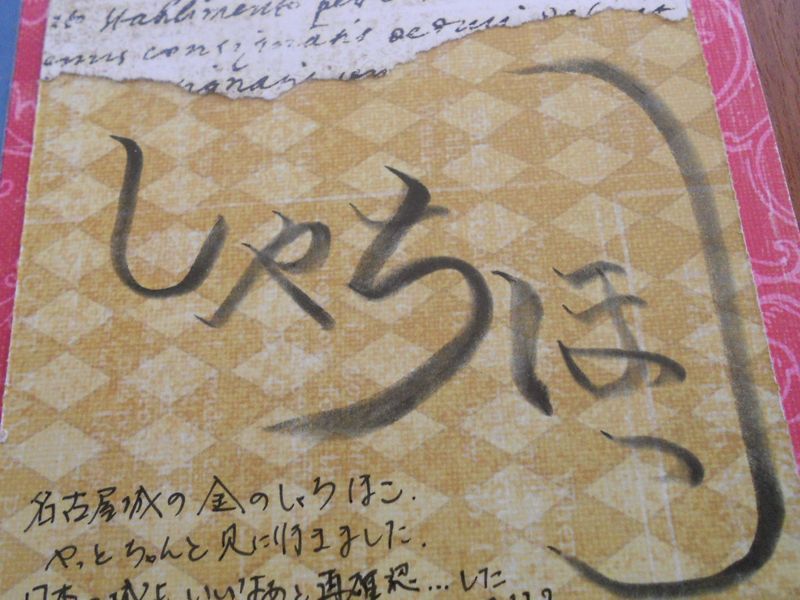 stabilimento per
consignatis
しゃちほこ
名古屋城の金のしゃちほこ.
やっとちゃんと見に行きました.
日本の城も いいなあと再確認…した